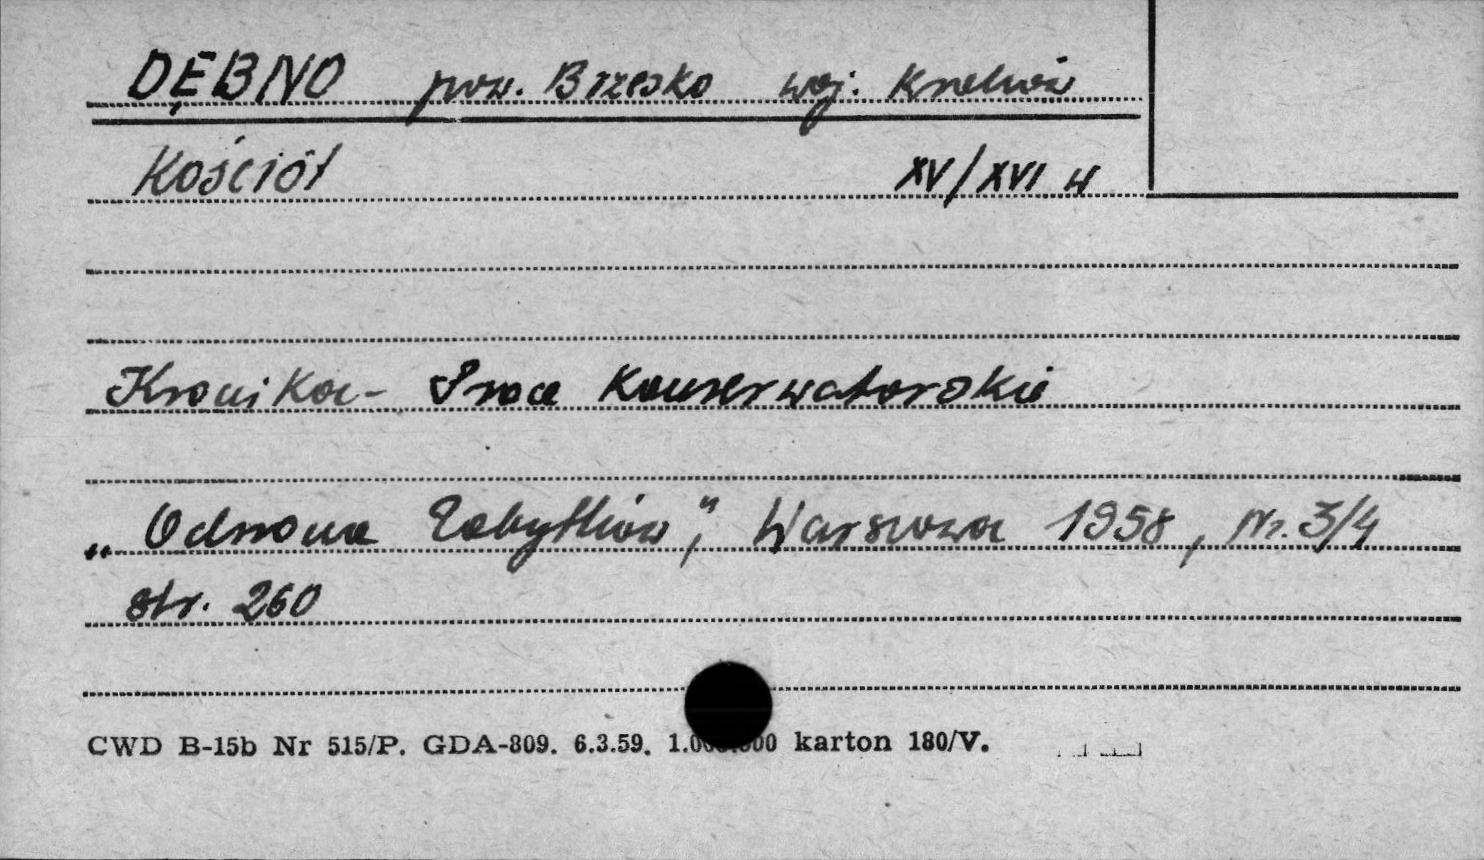 DĘBNO pow. Brzesko woj. Kraków
Kościół XV/XVI w
Kronika - Prace Konserwatorskie
„Ochrona Zabytków”, Warszawa 1958, Nr. 3/4
str. 260
CWD B-15b Nr 515/P. GDA-809. 6.3.59. 1.000.000 karton 180/V.